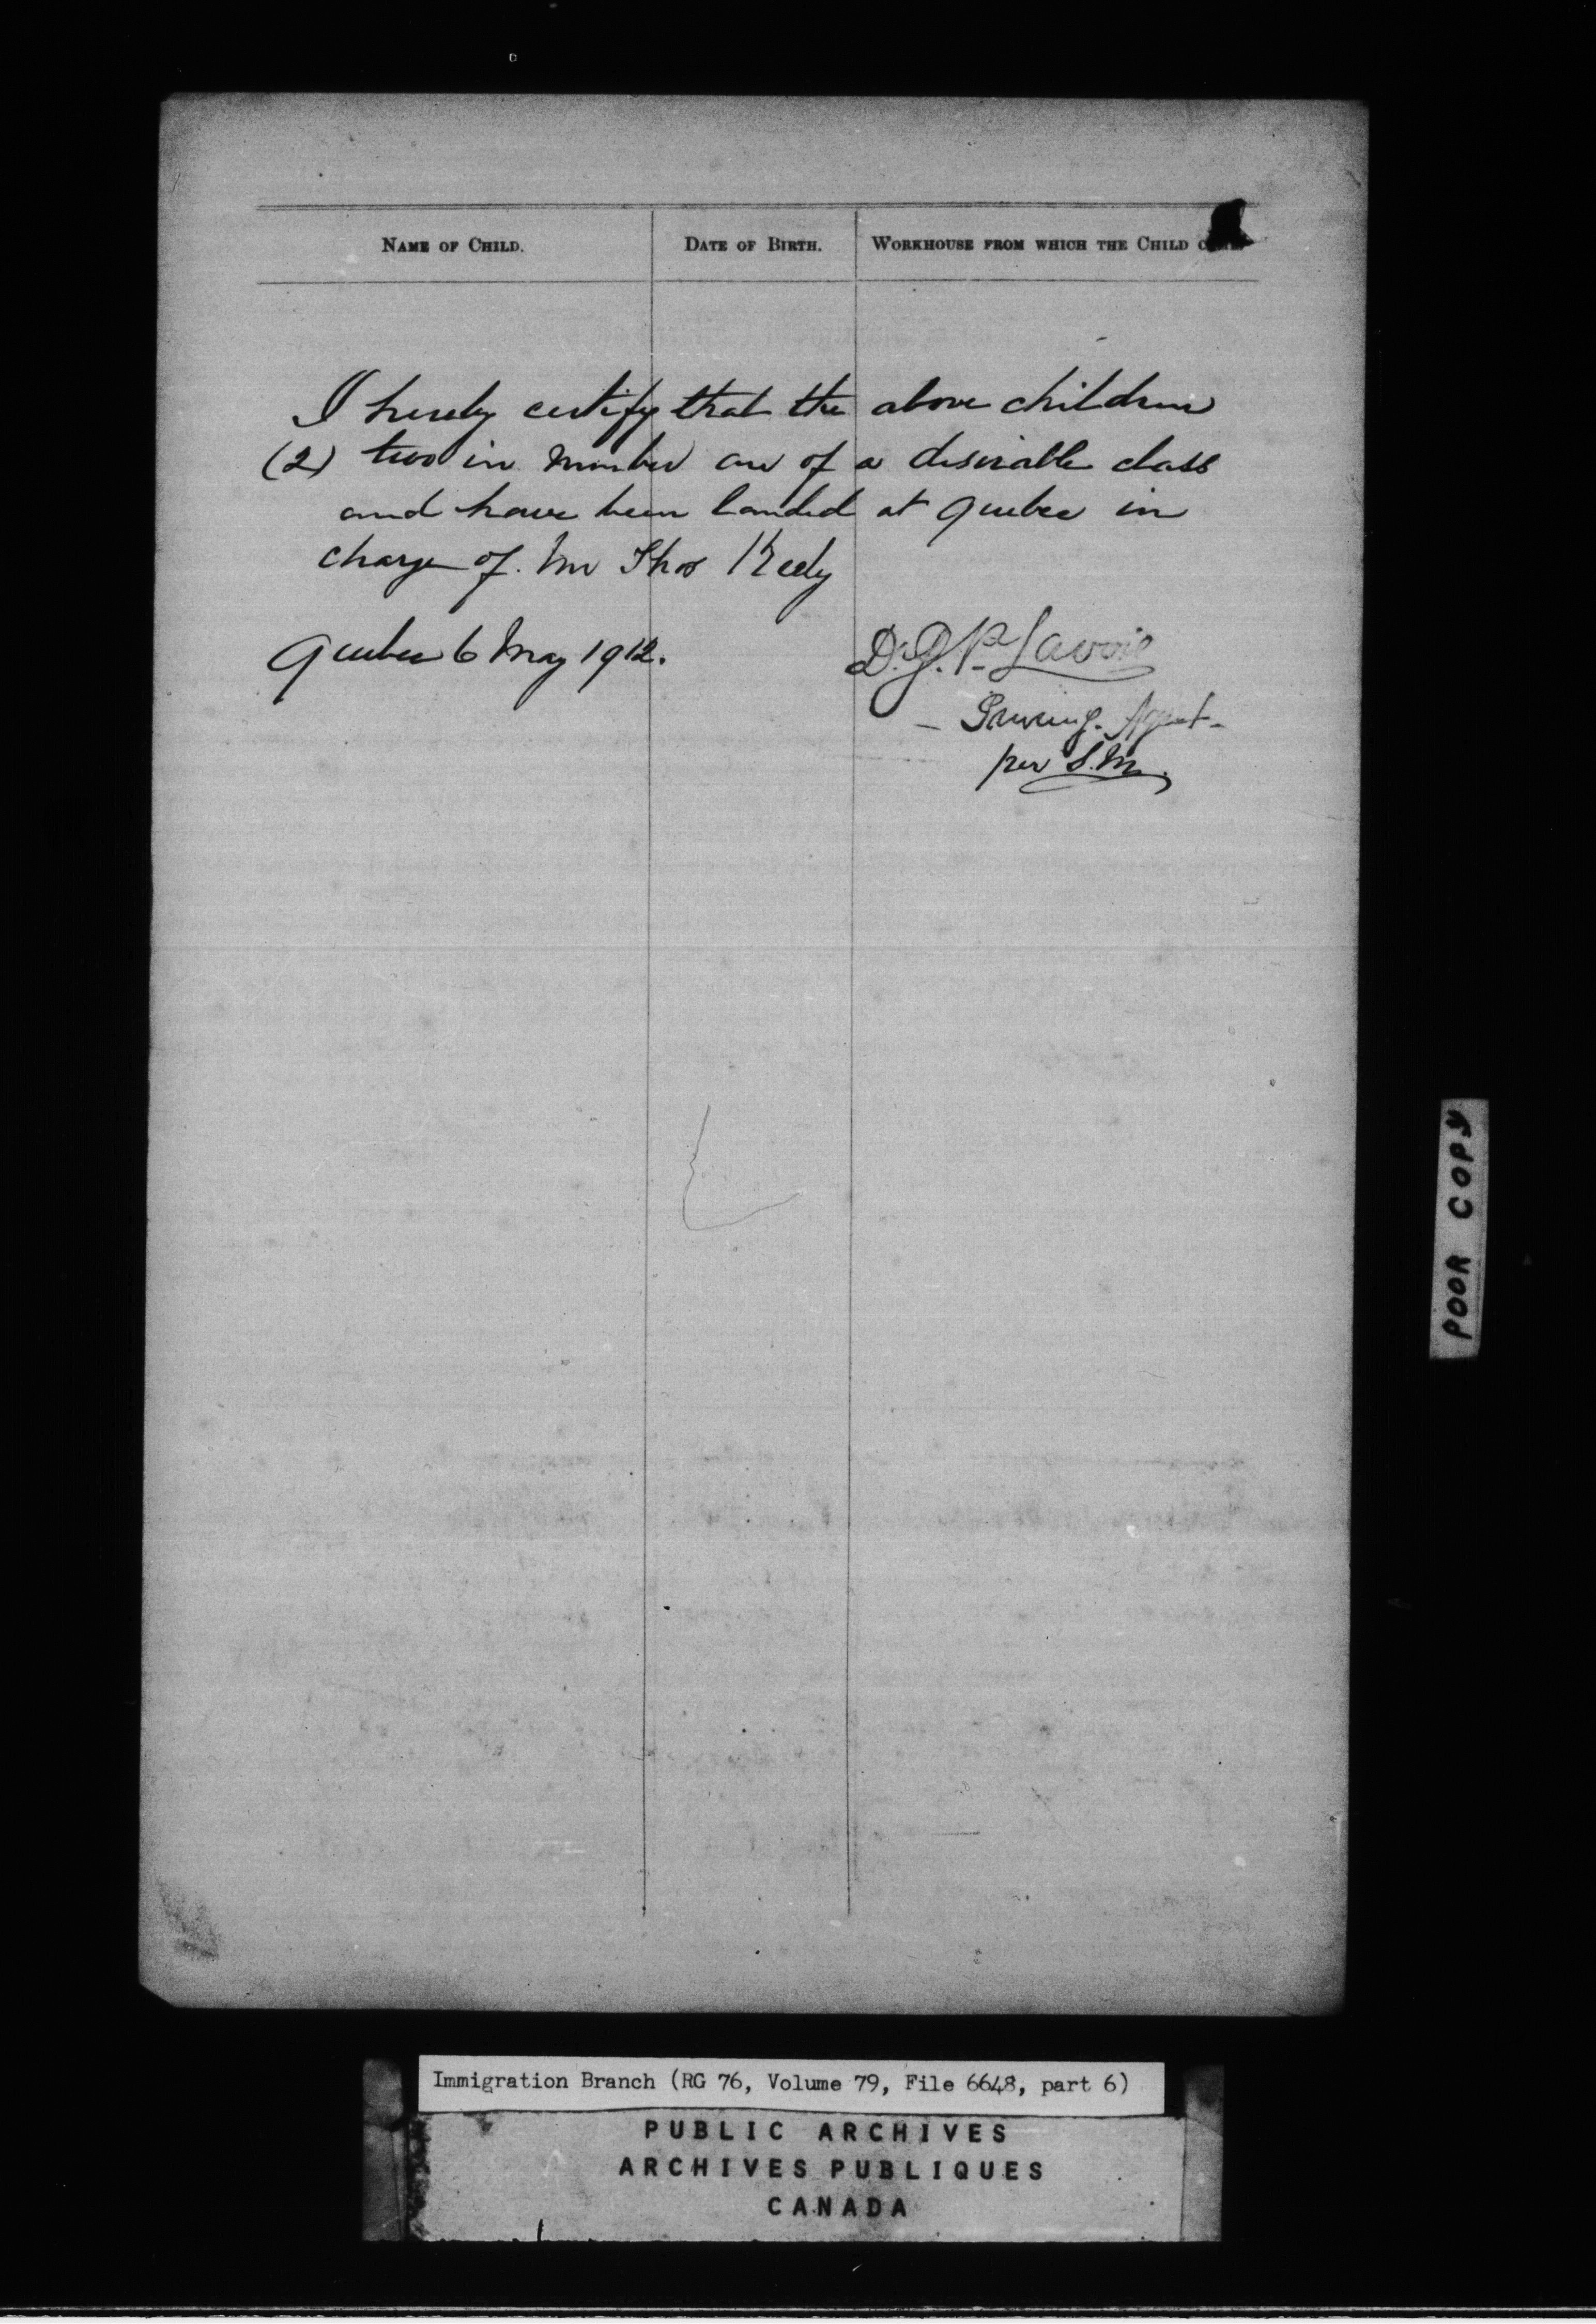 NAME OF CHILD. DATE OF BIRTH. WORKHOUSE FROM WHICH THE CHILD
I hereby certify that the above children
(2) two in number are of a desirable class
and have been landed at Quebec in
charge of. Mr Thos Keely
Quebec 6 May 1912.
Dr. J. P. Lavoie
Agent-
per S.M.
POOR COPY
Immigration Branch (RG 76, Volume 79, File 6648, part 6)
PUBLIC ARCHIVES
ARCHIVES PUBLIQUES
CANADA